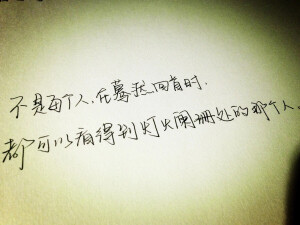 不是每个人,在蓦然回首时.
都可以看得到灯火阑珊处的那个人.